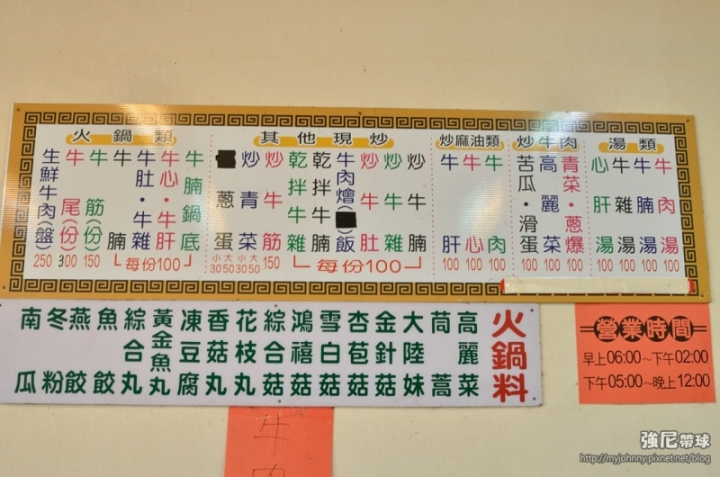 火鍋類
生鮮牛肉(盤) 250
牛尾(份) 300
牛筋(份) 150
牛腩
牛肚・牛雜
牛心・牛肝
牛腩鍋底
每份100
其他現炒
蔥蛋 小30 大50
炒青菜 小30 大50
炒牛筋 150
乾拌牛雜
乾拌牛腩
牛肉燴()飯
炒牛肚
炒牛雜
炒牛腩
每份100
炒麻油類
牛肝 100
牛心 100
牛肉 100
炒牛肉
苦瓜・滑蛋 100
高麗菜 100
青菜・蔥爆 100
湯類
心肝湯 100
牛雜湯 100
牛腩湯 100
牛肉湯 100
火鍋料
高麗菜
茼蒿
大陸妹
金針菇
杏苞菇
雪白菇
鴻禧菇
綜合菇
花枝丸
香菇丸
凍豆腐
黃金魚丸
綜合丸
魚餃
燕餃
冬粉
南瓜
營業時間
早上06:00~下午02:00
下午05:00~晚上12:00
牛肉
強尼帶球
http://myjohnny.pixnet.net/blog